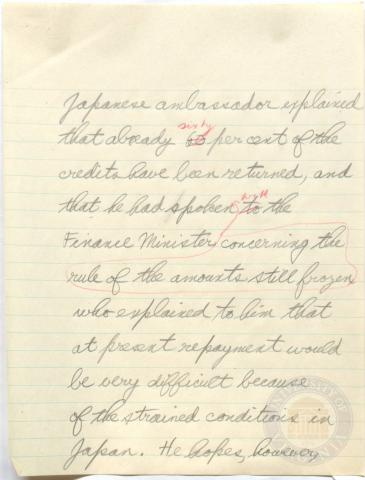 Japanese ambassador explained
sixty
that already 60 per cent of the
credits have been returned, and
with
that he had spoken to the
Finance Minister concerning the
rule of the amounts still frozen
who explained to him that
at present repayment would
be very difficult because
of the strained conditions in
Japan. He hopes, however,